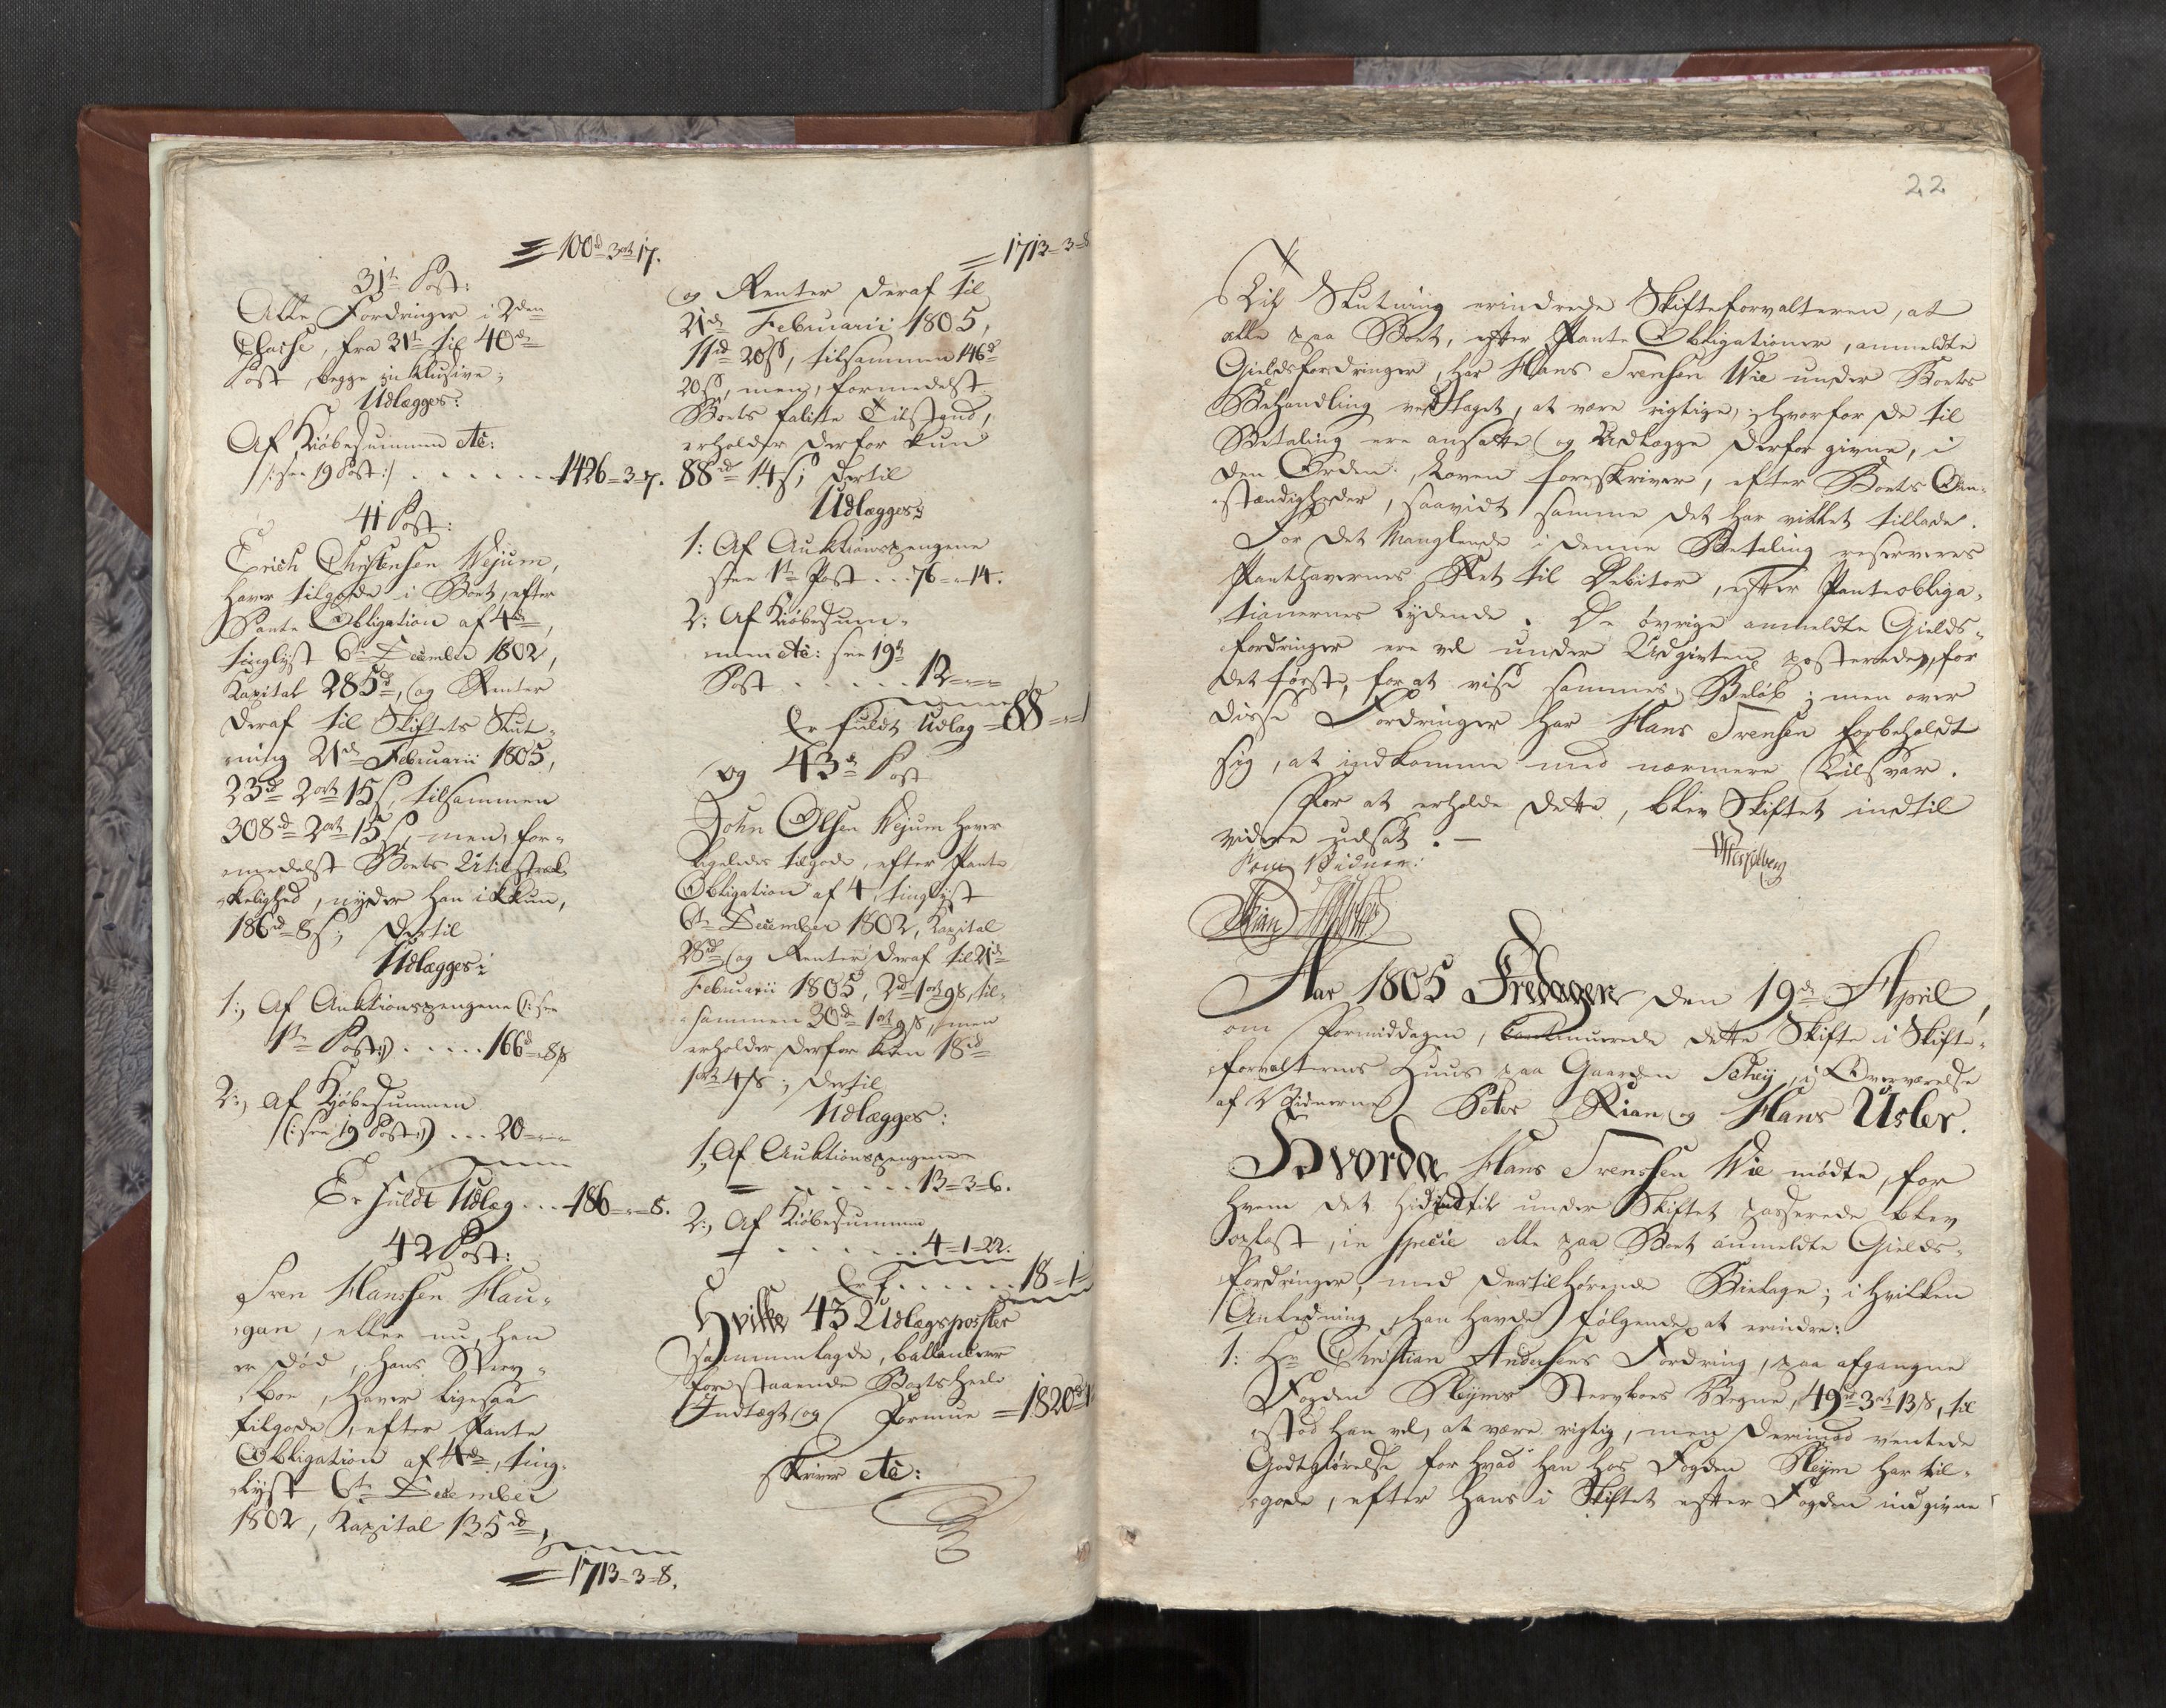 = 100d 3ort 17.
31te Post:
Alle Fordringer i 2den
Classe, fra 31te til 40de
Post, begge inklusive;
Udlægges:
Af Kiöbesummen etc:
/: see 19 Post :/ . . . . . . 1426=3=7.
41 Post:
Erich Christensen Wejum,
haver tilgode i Boet, efter
Pante Obligation af 4de,
tinglyst 6te December 1802,
Kapital 285d, og Renter
deraf til Skiftets Slut-
ning 21de Februarii 1805,
23d 2ort 15s, tilsammen
308d 2ort 15s, men, for-
medelst Boets Utilstræk-
kelighed, nyder han ikkun,
186d=8s; dertil
Udlægges:
1:, Af Auktionspengene (: see
1te Post :) . . . . . 166d=8s
2:, Af Kjöbesummen
(: see 19 Post :) . . . 20=„=„
Er fuldt Udlæg . . . 186=„=8.
42 Post:
Iver Hanssen Hau-
gan, eller nu, han
er död, hans Sterv-
boe, haver ligesaa
tilgode, efter Pante
Obligation af 4de, ting-
lyst 6te December
1802, Kapital 135d,
= 1713=3=8.
= 1713=3=8
og Renter deraf til
21de Februarii 1805,
11d 20s, tilsammen 146d
20s, men, formedelst
Boets falitte Tilstand,
erholder derfor kun
88d 14s; dertil
Udlægges:
1: Af Auktionspengene
see 1te Post . . . 76=„=14.
2: Af Kiöbesum-
men etc: see 19de
Post . . . . . . 12=„=„
Er fuldt Udlæg = 88=„=1
og 43de Post
John Olsen Wejum haver
ligeledes tilgode, efter Pante
Obligation af 4, tinglyst
6te December 1802, Kapital
28d, og Renter deraf til 21de
Februarii 1805, 2d 1ort 9s, til-
sammen 30d 1ort 9s, men
erholder derfor kun 18d
1ort 4s; dertil
Udlægges:
1, Af Auktionspengene
= . . . . . . 13=3=6.
2:, Af Kiöbesummen
= . . . . . . 4=1=22.
Er . . . . . . 18=1=
Hvilke 43 Udlægsposter
sammenlagde, ballancerer
forestaaende Boets heele
Indtægt og Formue = 1820d 1
skriver etc:
22
Til Slutning erindrede Skifteforvalteren, at
alle paa Boet, efter Pante Obligationer, anmeldte
Gieldsfordringer, har Hans Iversen Wie under Boets
Behandling vedtaget, at være rigtige, hvorfor de til
Betaling ere ansatte og Udlægge derfor givne, i
den Orden Loven foreskriver, efter Boets Om-
stændigheder, saavidt samme det har villet tillade.
For det Manglende i denne Betaling reserveres
Panthavernes Ret til Debitor, efter Panteobliga-
tionernes lydende. De övrige anmeldte Gields-
fordringer ere vel under Udgivten posterede, for
det förste, for at vise sammes Belöb; men over
disse Fordringer har Hans Iversen forbeholdt
sig, at indkomme med nærmere Tilsvar.
For at erholde dette, blev Skiftet indtil
videre udsat. —
Som Vidner:
Aar 1805 Fredagen den 19de April,
om Formiddagen, continuerede dette Skifte i Skifte-
forvalterens Huus paa Gaarden Schey, i Overværelse
af Vidnerne Peter Rian og Hans Usler.
Hvorda Hans Iverssen Wie mödte, for
hvem det hidindtil under Skiftet passerede blev
oplæst, in specie alle paa Boet anmeldte Gields-
fordringer, med dertilhörende Bielage; i hvilken
Anledning han havde fölgende at erindre:
1: Hr Christian Andersens Fordring, paa afgangne
Fogden Kleyms Stervboes Vegne, 49d 3ort 13s, til-
stod han vel, at være rigtig, men derimod ventede
Godtgiörelse for hvad han hos Fogden Kleym har til-
gode, efter hans i Skiftet efter Fogden indgivne